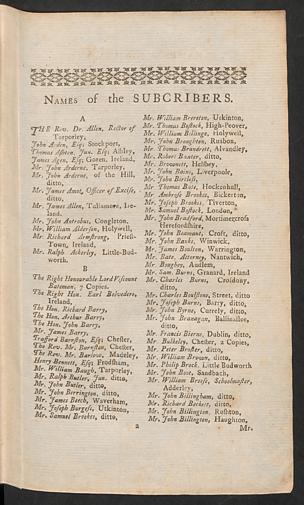 NAMES of the SUBCRIBERS.
A
THE Rev. Dr. Allen, Rector of
Tarporley,
John Arden, Esq; Stockport,
Thomas Assheton, Jun. Esq; Ashley,
James Agen, Esq; Goren, Ireland,
Mr. John Arderne, Tarporley,
Mr. John Arderne, of the Hill,
ditto,
Mr. James Amot, Officer of Excise,
ditto,
Mr. James Allen, Tullamore, Ire-
land,
Mr. John Astrobus, Congleton,
Mr. William Alderson, Holywell,
Mr. Richard Armstrong, Priest-
Town, Ireland,
Mr. Ralph Ackerley, Little-Bud-
worth.
B
The Right Honourable Lord Viscount
Bateman, 7 Copies.
The Right Hon. Earl Belvedere,
Ireland,
The Hon. Richard Barry,
The Hon. Arthur Barry,
The Hon. John Barry,
Mr. James Barry,
Trafford Barnston, Esq; Chester,
The Rev. Mr. Barnston, Chester,
The Rev. Mr. Barlow, Madeley,
Henry Bennett, Esq; Frodsham,
Mr. William Baugh, Tarporley,
Mr. Ralph Butler, Jun. ditto,
Mr. John Butler, ditto,
Mr. John Berrington, ditto,
Mr. James Beech, Waverham,
Mr. Joseph Burgess, Utkinton,
Mr. Samuel Brookes, ditto,
a
Mr. William Brereton, Utkinton,
Mr. Thomas Bostock, High-Poover,
Mr. William Billings, Holywell,
Mr. John Broughton, Rusbon,
Mr. Thomas Brandrett, Alvandley,
Mr. Robert Baxter, ditto,
Mr. Brownett, Helsbey,
Mr. John Bains, Liverpoole,
Mr. John Birtless,
Mr. Thomas Bate, Hockenhall,
Mr. Ambrose Brookes, Bickerton,
Mr. Joseph Brookes, Tiverton,
Mr. Samuel Bostock, London,
Mr. John Bradford, Mortimercross
Herefordshire,
Mr. John Beamont, Croft, ditto,
Mr. John Banks, Winwick,
Mr. James Boulton, Warrington,
Mr. Bate, Attorney, Nantwich,
Mr. Baughey, Audlem,
Mr. Sam. Burns, Granard, Ireland
Mr. Charles Burns, Croidony,
ditto,
Mr. Charles Boulstone, Street, ditto
Mr. Joseph Burns, Barry, ditto,
Mr. John Byrne, Currely, ditto,
Mr. John Brannagan, Ballinalley,
ditto,
Mr. Francis Bierns, Dublin, ditto,
Mr. Bulkeley, Chester, 2 Copies,
Mr. Peter Broster, ditto,
Mr. William Brown, ditto,
Mr. Philip Brock, Little Budworth
Mr. John Boot, Sandbach,
Mr. William Breese, Schoolmaster,
Adderley,
Mr. John Billingham, ditto,
Mr. Richard Beckett, ditto,
Mr. John Billington, Rushton,
Mr. John Billington, Haughton,
Mr.